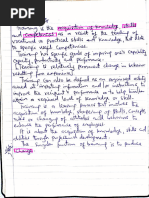 Training is the acquisition of knowledge, skills
and competencies as a result of the teaching
vocational or practical skills and knowledge, that relate
to specific useful competencies.
Training has specific goals of improving one's capability
capacity, productivity and performance.
Training is relatively permanent change in behaviour
resulting from experience.
Training can also be defined as any organized activity
aimed at imparting information and/or instructions to
improve the recipient's performance or to help him/her
attain a required level of knowledge or skills.
Training is a learning process that involves the
acquisition of knowledge, sharpening of skills, concepts,
rules or changing of attitudes and behaviours to
enhance the performance of employees.
It is about the acquisition of knowledge, skills and
abilities through professional development.
The function of training is to produce
Change